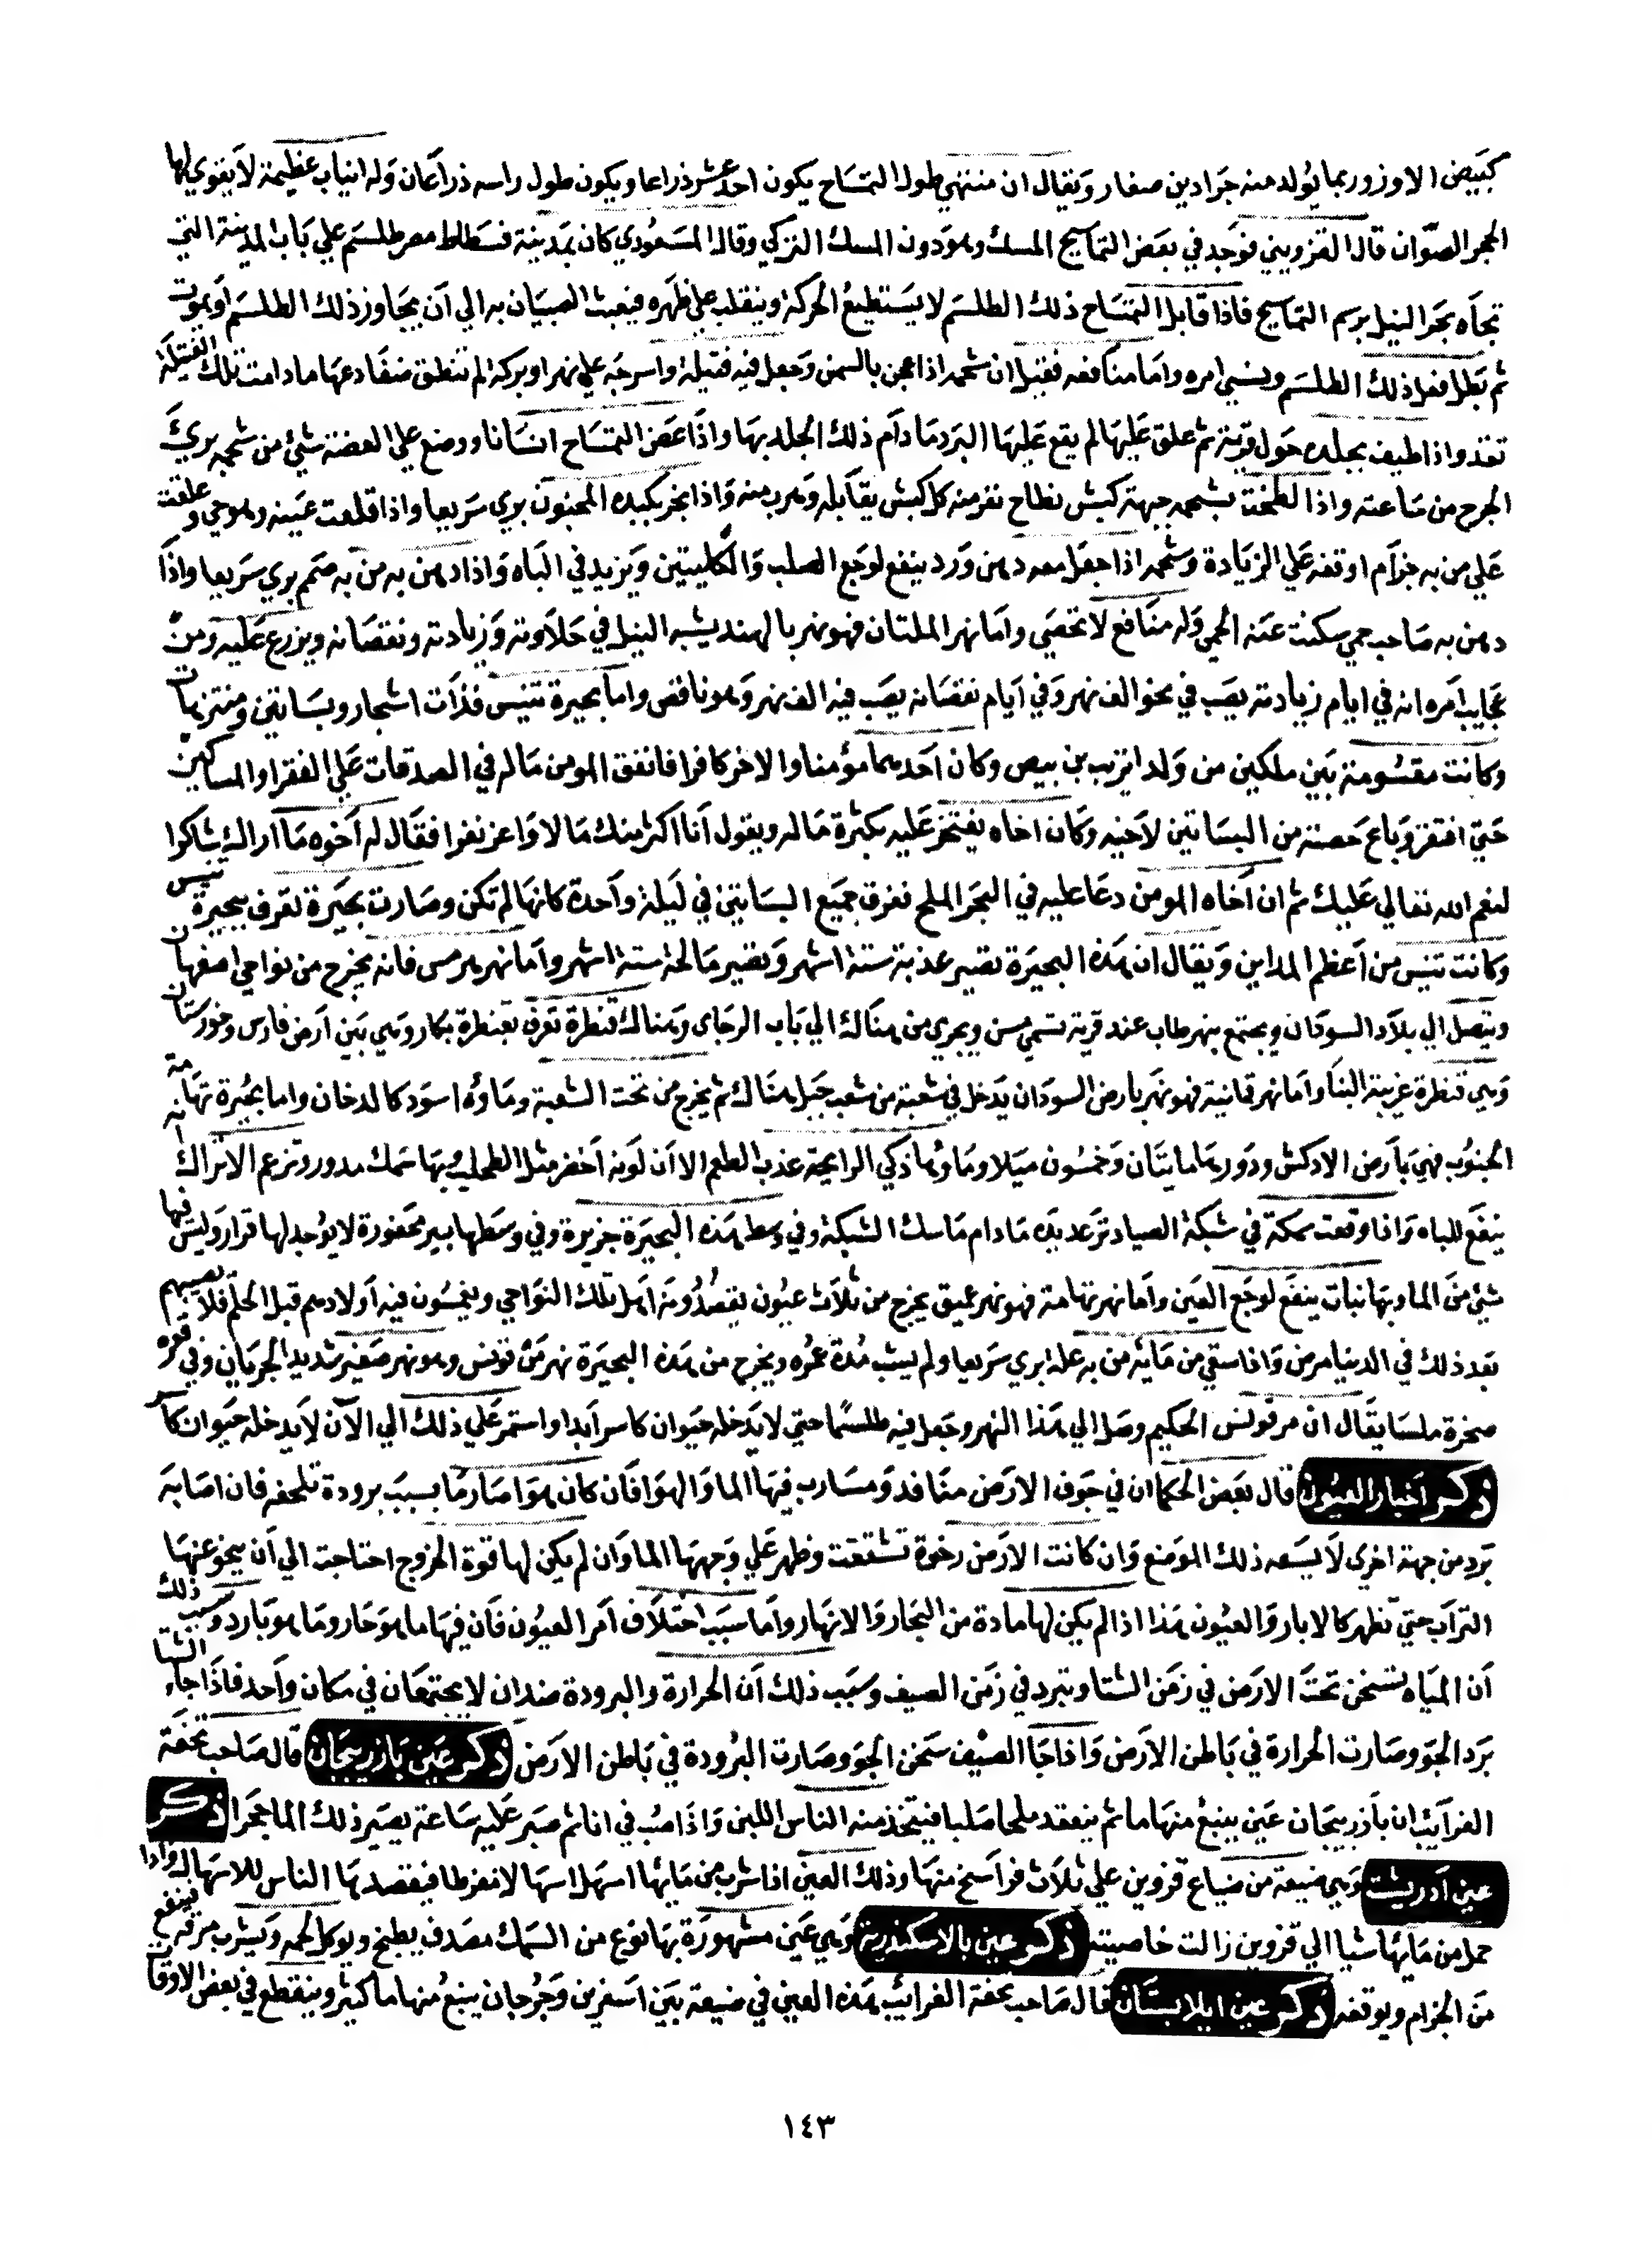 كبيض الاوز وربما يولد منه جرادين صغار ويقال ان منتهي طول التمساح يكون احد عشر ذراعا ويكون طول راسه ذراعان وله انياب عظيمة لا يقوي لها
الحجر الصوان قال القزويني فوجد في بعض التماسيح المسك وهو دون المسك التركي وقال المسعودي كان بمدينة فسطاط مصر طلسم علي باب المدينة التي
تجاه بحر النيل برسم التماسيح فاذا قابل التمساح ذلك الطلسم لا يستطيع الحركة وينقلب علي ظهره فيعبث الصبيان به الي ان يجاوز ذلك الطلسم او يموت
ثم بطل فعل ذلك الطلسم ونسي امره واما منافعه فقيل ان شحمه اذا عجن بالسمن وجعل فيه فتيلة واسرجه علي نهر او بركة لم تنطق ضفادعها ما دامت تلك الفتيلة
تقد واذا طيف بجلده حول قرية ثم علق عليها لم يقع عليها البرد ما دام ذلك الجلد بها واذا عض التمساح انسانا ووضع علي العضة شيئ من شحمه بريئ
الجرح من ساعته واذا لطخت بشحمه جبهة كبش نطاح نفر منه كل كبش يقابله وهرب منه واذا بخر بكبده المجنون بري سريعا واذا قلعت عينه وهو حي وعلقت
علي من به جزام اوقفه علي الزيادة وشحمه اذا جعل معه دهن ورد ينفع لوجع الصلب والكليتين ويزيد في الباه واذا دهن به من به صمم بري سريعا واذا
دهن به صاحب حمي سكنت عنه الحمي وله منافع لا تحصي واما نهر الملتان فهو نهر بالهند يشبه النيل في حلاوته وزيادته ونقصانه ويزرع عليه ومن
عجايب امره انه في ايام زيادته يصب في نحو الف نهر وفي ايام نقصانه يصب فيه الف نهر وهو ناقص واما بحيرة تنيس فذات اشجار وبساتين ومنتزهات
وكانت مقسومة بين ملكين من ولد اتريب بن بيص وكان احدهما مؤمنا والاخر كافرا فانفق المومن ماله في الصدقات علي الفقرا والمساكين
حتي افتقر وباع حصته من البساتين لاخيه وكان اخاه يفتخر عليه بكثرة ماله ويقول انا اكثر منك مالا واعز نفرا فقال له اخوه ما اراك شاكرا
لنعم الله تعالي عليك ثم ان اخاه المومن دعا عليه في البحر الملح فغرق جميع البساتين في ليلة واحدة كانها لم تكن وصارت بحيرة تعرف ببحيرة تنيس
وكانت تنيس من اعظم المداين ويقال ان هذه البحيرة تصير عذبة ستة اشهر وتصير مالحة ستة اشهر واما نهر هرمس فانه يخرج من نواحي اصفهان
ويتصل الي بلاد السودان ويجتمع بنهر طاب عند قرية تسمي مسن ويجري من هناك الي باب الرجاي وهناك قنطرة تعرف بقنطرة بكار وهي بين ارض فارس وخورستان
وهي قنطرة غريبة البنا واما نهر قمانية فهو نهر بارض السودان يدخل في شعبة من شعب جبل هناك ثم يخرج من تحت الشعبة وماؤه اسود كالدخان واما بحيرة تهامة
الجنوب فهي بارض الادكش ودورها مايتان وخمسون ميلا وماؤها ذكي الرايحة عذب الطعم الا ان لونه اخضر مثل الطحلب وبها سمك مدور وتزعم الاتراك انه
ينفع للباه واذا وقعت سمكة في شبكة الصياد ترعد يده ما دام ماسك الشبكة وفي وسط هذه البحيرة جزيرة وفي وسطها بير محفورة لا يوجد لها قرار وليس فيها
شيئ من الما وبها نبات ينفع لوجع العين واما نهر تهامة فهو نهر عميق يخرج من ثلاث عيون يقصدونه اهل تلك النواحي ويغمسون فيه اولادهم قبل الحلم فلا يصيبهم
بعد ذلك في الدنيا مرض واذا سقي من مائه من به علة ابري سريعا ولم يشب مدة عمره ويخرج من هذه البحيرة نهر من قونس وهو نهر صغير شديد الجريان وفي قعره
صخرة ملسا يقال ان مرقونس الحكيم وصل الي هذا النهر وجعل فيه طلسما حتي لا يدخله حيوان كاسر ابدا واستمر علي ذلك الي الان لا يدخله حيوان كاسر
ذكر اخبار العيون قال بعض الحكما ان في جوف الارض منافد ومسارب فيها الما والهوا فان كان هوا صار ما بسبب برودة تلحقه فان اصابه
برد من جهة اخري لا يسعه ذلك الموضع وان كانت الارض رخوة تشققت وظهر علي وجهها الما وان لم يكن لها قوة الخروج احتاجت الي ان ينحو عنها
التراب حتي تظهر كالابار والعيون هذا اذا لم يكن لها مادة من البحار والانهار واما سبب اختلاف امر العيون فان فيها ما هو حار وما هو بارد وسبب ذلك
ان المياه تسخن تحت الارض في زمن الشتا وتبرد في زمن الصيف وسبب ذلك ان الحرارة والبرودة ضدان لا يجتمعان في مكان واحد فاذا جاء الشتا
برد الجو وصارت الحرارة في باطن الارض واذا جا الصيف سخن الجو وصارت البرودة في باطن الارض ذكر عين باذربيجان قال صاحب تحفة
الغرائب ان باذربيجان عين ينبع منها ما ثم ينعقد ملحا صلبا فيتخذ منه الناس اللبن واذا صب في انا ثم صبر عليه ساعة يصير ذلك الما حجرا ذكر
عين ادريشت وهي ضيعة من ضياع قزوين علي ثلاث فراسخ منها وذلك العين اذا شرب من مايها اسهل اسهالا مفرطا فيقصدها الناس للاسهال واذا
حمل من مايها شيا الي قزوين زالت خاصيته ذكر عين بالاسكندرية وهي عين مشهورة بها نوع من السمك مصدف يطبخ ويوكل لحمه ويشرب مرقه فينفع
من الجزام ويوقفه ذكر عين ايلابستان قال صاحب تحفة الغرائب هذه العين في ضيعة بين اسفرين وجرجان ينبع منها ما كثير وينقطع في بعض الاوقات
١٤٣